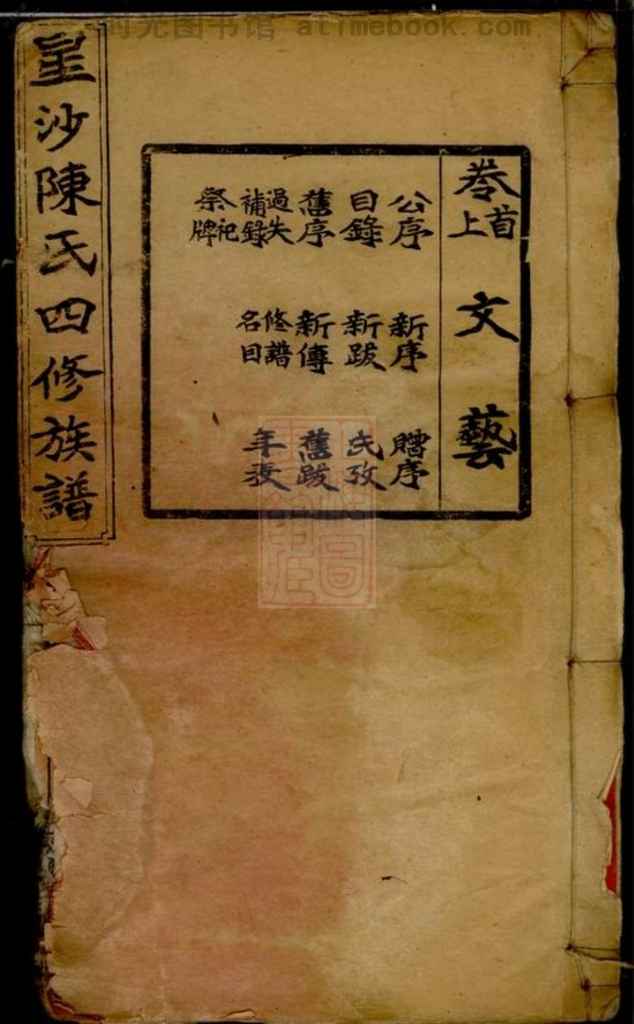 时光图书馆 atimebook.com
星沙陳氏四修族譜
卷首上 文藝
公序 新序 贈序
目錄 新跋 氏攷
舊序 新傳 舊跋
過失補錄 修譜名目 年表
祭祀牌